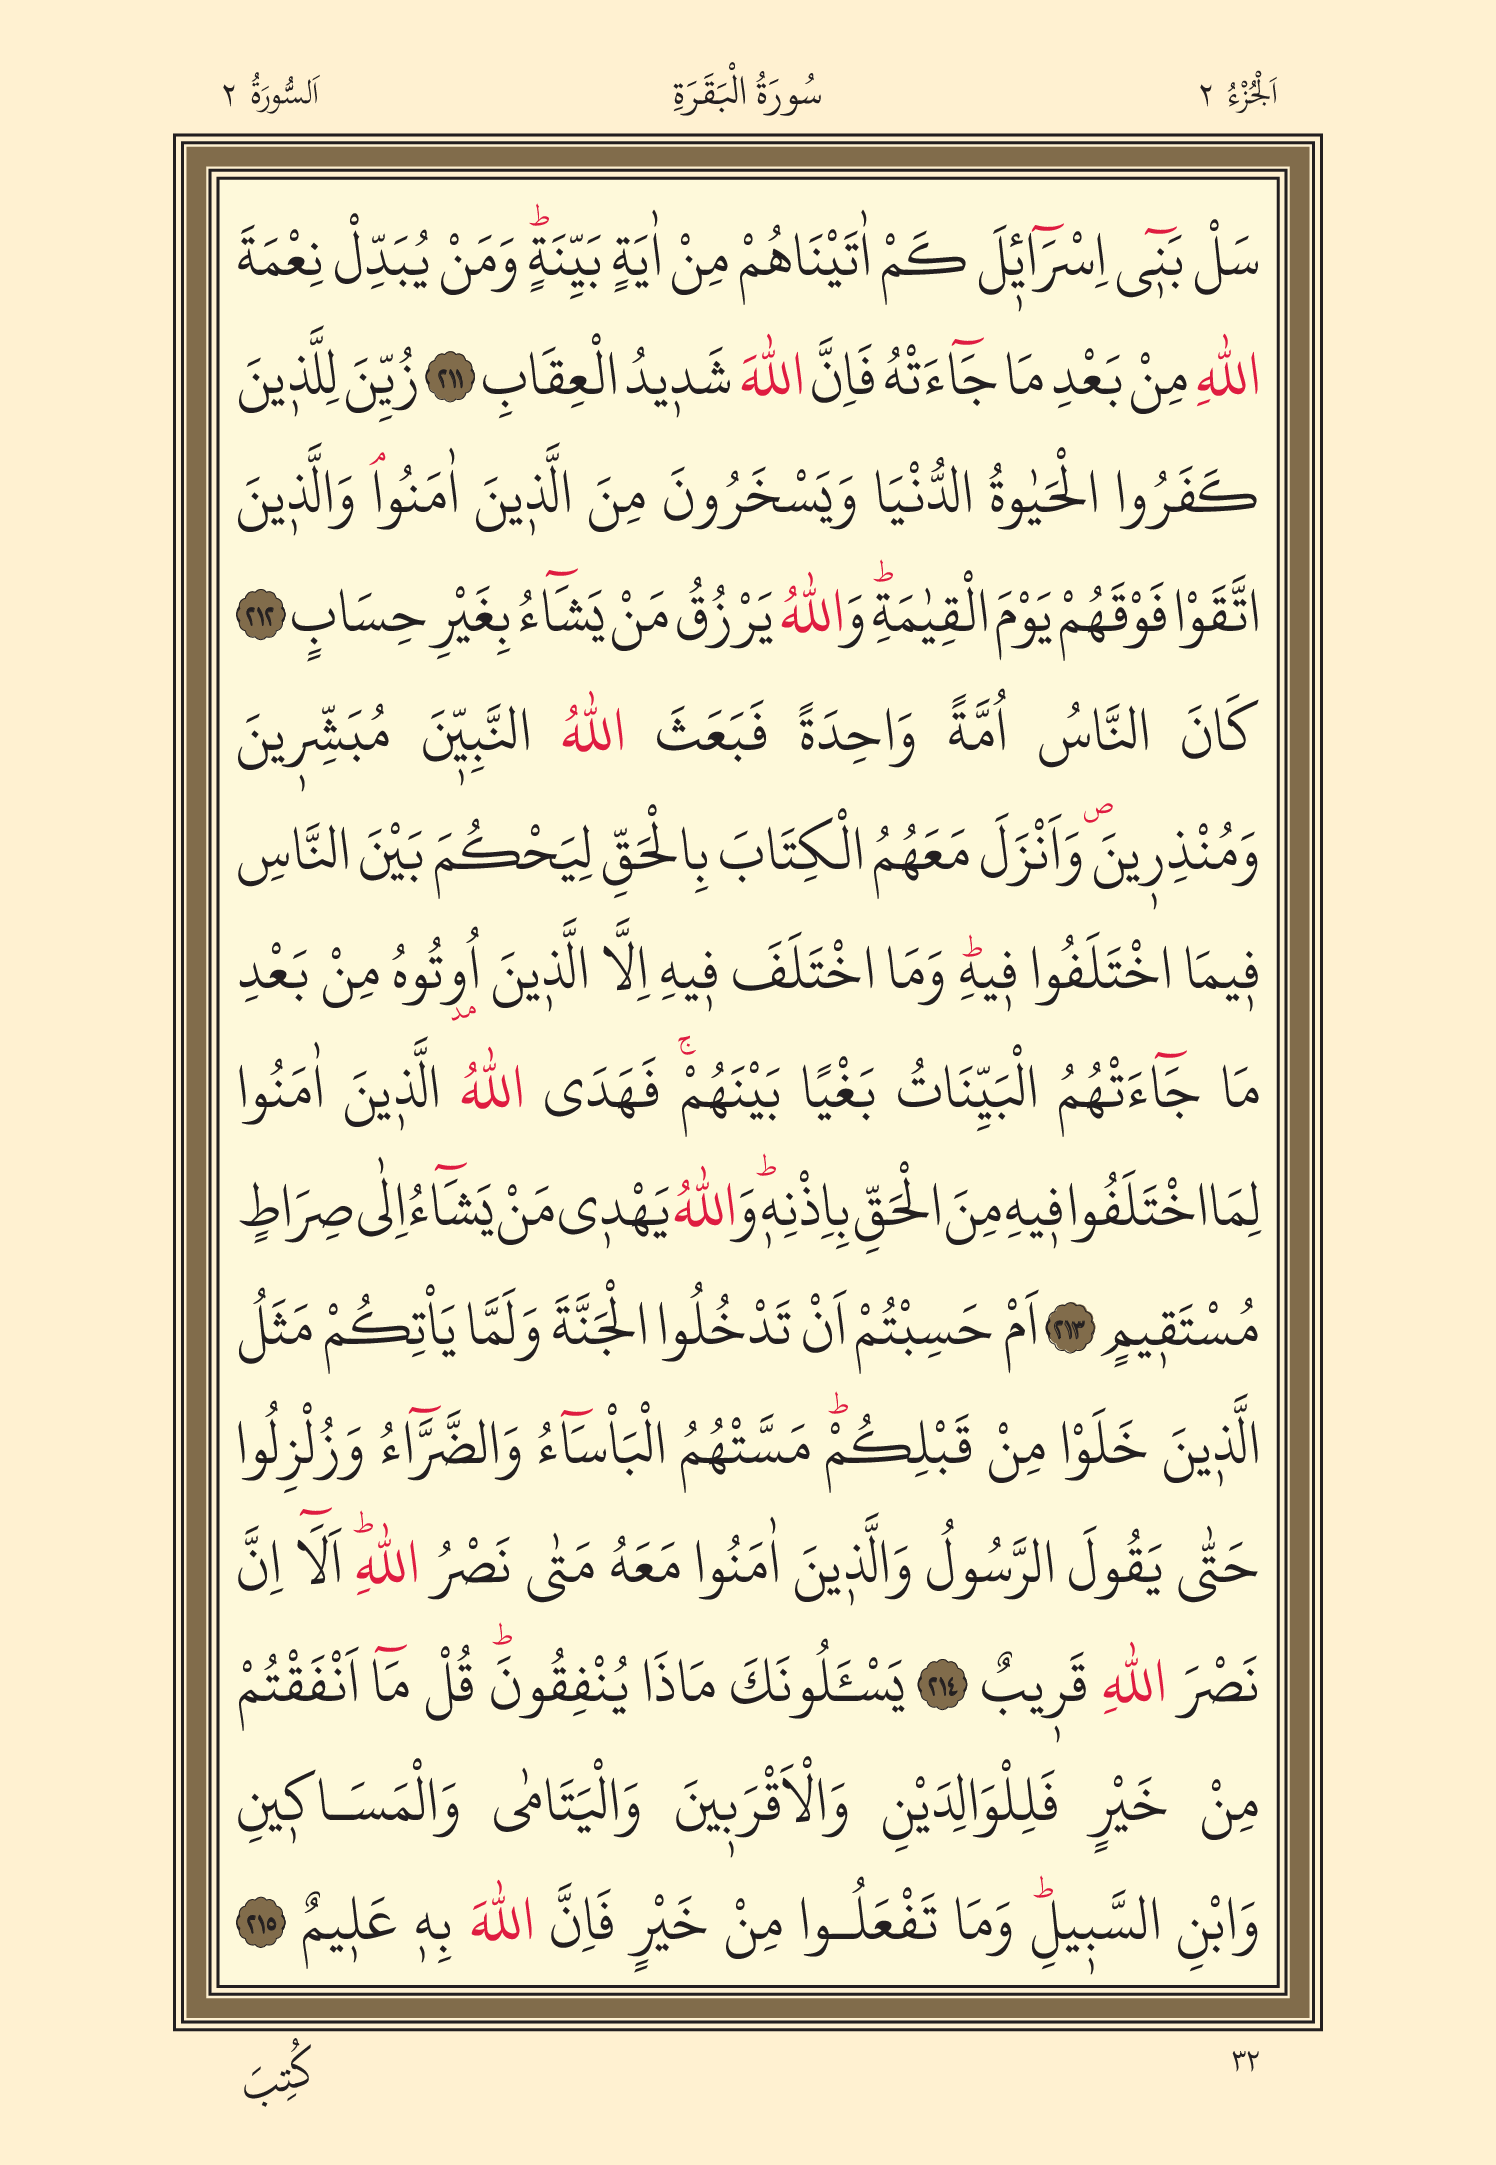 اَلْجُزْءُ ٢
سُورَةُ الْبَقَرَةِ
اَلسُّورَةُ ٢
سَلْ بَنٖٓى اِسْرَٓائٖلَ كَمْ اٰتَيْنَاهُمْ مِنْ اٰيَةٍ بَيِّنَةٍؕ وَمَنْ يُبَدِّلْ نِعْمَةَ
اللّٰهِ مِنْ بَعْدِ مَا جَٓاءَتْهُ فَاِنَّ اللّٰهَ شَدٖيدُ الْعِقَابِ ﴿٢١١﴾ زُيِّنَ لِلَّذٖينَ
كَفَرُوا الْحَيٰوةُ الدُّنْيَا وَيَسْخَرُونَ مِنَ الَّذٖينَ اٰمَنُواۘ وَالَّذٖينَ
اتَّقَوْا فَوْقَهُمْ يَوْمَ الْقِيٰمَةِؕ وَاللّٰهُ يَرْزُقُ مَنْ يَشَٓاءُ بِغَيْرِ حِسَابٍ ﴿٢١٢﴾
كَانَ النَّاسُ اُمَّةً وَاحِدَةً فَبَعَثَ اللّٰهُ النَّبِيّٖنَ مُبَشِّرٖينَ
وَمُنْذِرٖينَࣕ وَاَنْزَلَ مَعَهُمُ الْكِتَابَ بِالْحَقِّ لِيَحْكُمَ بَيْنَ النَّاسِ
فٖيمَا اخْتَلَفُوا فٖيهِؕ وَمَا اخْتَلَفَ فٖيهِ اِلَّا الَّذٖينَ اُوتُوهُ مِنْ بَعْدِ
مَا جَٓاءَتْهُمُ الْبَيِّنَاتُ بَغْيًا بَيْنَهُمْۚ فَهَدَى اللّٰهُ الَّذٖينَ اٰمَنُوا
لِمَا اخْتَلَفُوا فٖيهِ مِنَ الْحَقِّ بِاِذْنِهٖؕ وَاللّٰهُ يَهْدٖى مَنْ يَشَٓاءُ اِلٰى صِرَاطٍ
مُسْتَقٖيمٍ ﴿٢١٣﴾ اَمْ حَسِبْتُمْ اَنْ تَدْخُلُوا الْجَنَّةَ وَلَمَّا يَاْتِكُمْ مَثَلُ
الَّذٖينَ خَلَوْا مِنْ قَبْلِكُمْؕ مَسَّتْهُمُ الْبَاْسَٓاءُ وَالضَّرَّٓاءُ وَزُلْزِلُوا
حَتّٰى يَقُولَ الرَّسُولُ وَالَّذٖينَ اٰمَنُوا مَعَهُ مَتٰى نَصْرُ اللّٰهِؕ اَلَٓا اِنَّ
نَصْرَ اللّٰهِ قَرٖيبٌ ﴿٢١٤﴾ يَسْـَٔلُونَكَ مَاذَا يُنْفِقُونَؕ قُلْ مَٓا اَنْفَقْتُمْ
مِنْ خَيْرٍ فَلِلْوَالِدَيْنِ وَالْاَقْرَبٖينَ وَالْيَتَامٰى وَالْمَسَـاكٖينِ
وَابْنِ السَّبٖيلِؕ وَمَا تَفْعَلُـوا مِنْ خَيْرٍ فَاِنَّ اللّٰهَ بِهٖ عَلٖيمٌ ﴿٢١٥﴾
٣٢
كُتِبَ